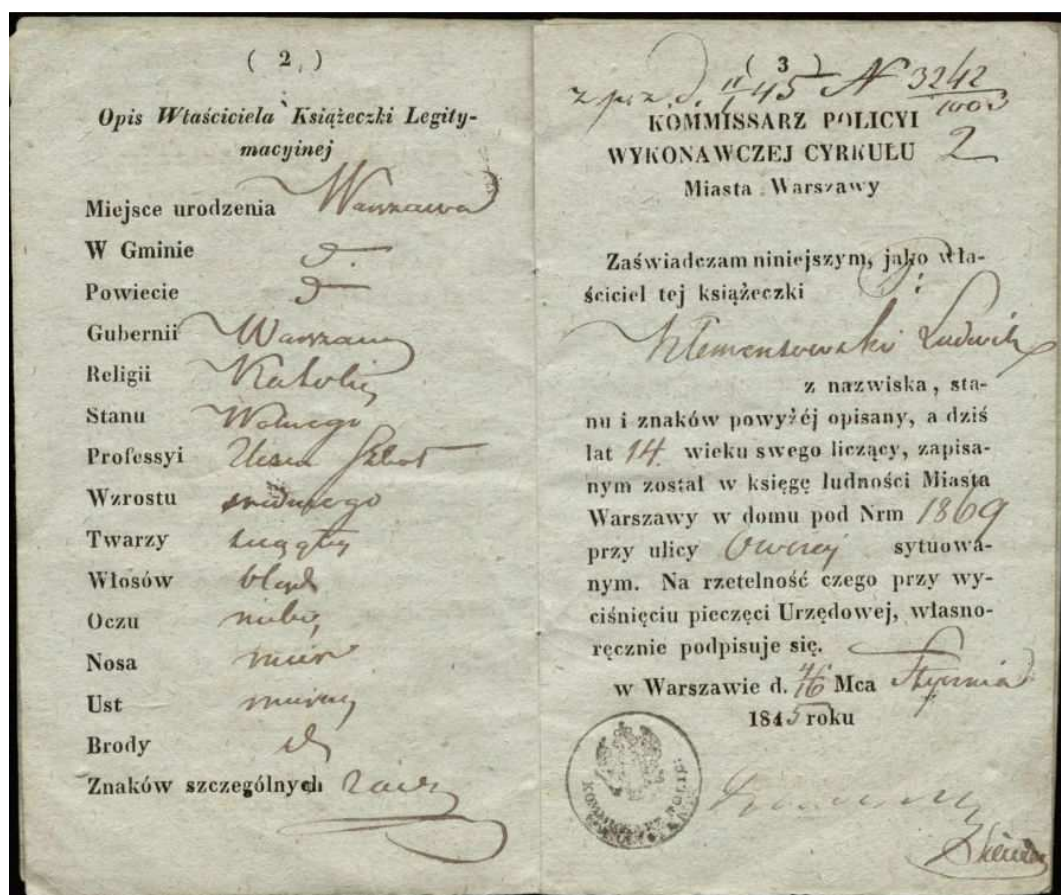 ( 2 )
Opis Właściciela Książeczki Legity-
macyinej
Miejsce urodzenia Warszawa
W Gminie
Powiecie
Gubernii Warszaw
Religii Katolic
Stanu Wolnego
Professyi Uczeń Szkół
Wzrostu średniego
Twarzy
Włosów blond
Oczu niebie
Nosa miern
Ust miern
Brody
Znaków szczególnych żadn
( 3 )
N 3242
KOMMISSARZ POLICYI
WYKONAWCZEJ CYRKUŁU 2
Miasta Warszawy
Zaświadczam niniejszym, jako wła-
ściciel tej książeczki
Klementowski Ludwik
z nazwiska, sta-
nu i znaków powyżéj opisany, a dziś
lat 14 wieku swego liczący, zapisa-
nym został w księgę ludności Miasta
Warszawy w domu pod Nrm 1869
przy ulicy sytuowa-
nym. Na rzetelność czego przy wy-
ciśnięciu pieczęci Urzędowej, własno-
ręcznie podpisuje się.
w Warszawie d. 4/16 Mca Stycznia
1845 roku